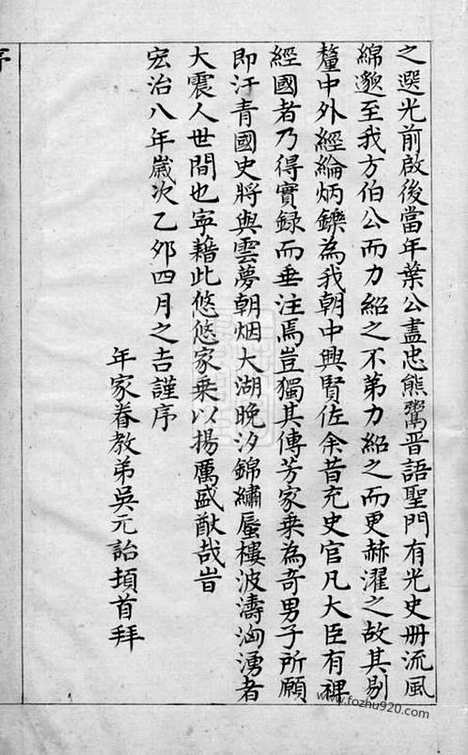 之選光前啟後當年葉公盡忠熊鬻晋語聖門有光史册流風
綿邈至我方伯公而力紹之不弟力紹之而更赫濯之故其剔
釐中外經綸炳鑠為我朝中興賢佐余昔充史官凡大臣有裨
經國者乃得實録而垂注焉豈獨其傳芳家乗為奇男子所願
即汗青國史將與雲夢朝烟大湖晚汐錦繡蜃樓波濤洶湧者
大震人世間也寜藉此悠悠家乗以揚厲盛猷哉旹
宏治八年嵗次乙夘四月之吉謹序
年家眷教弟吳元詒頓首拜
序
www.fozhu920.com